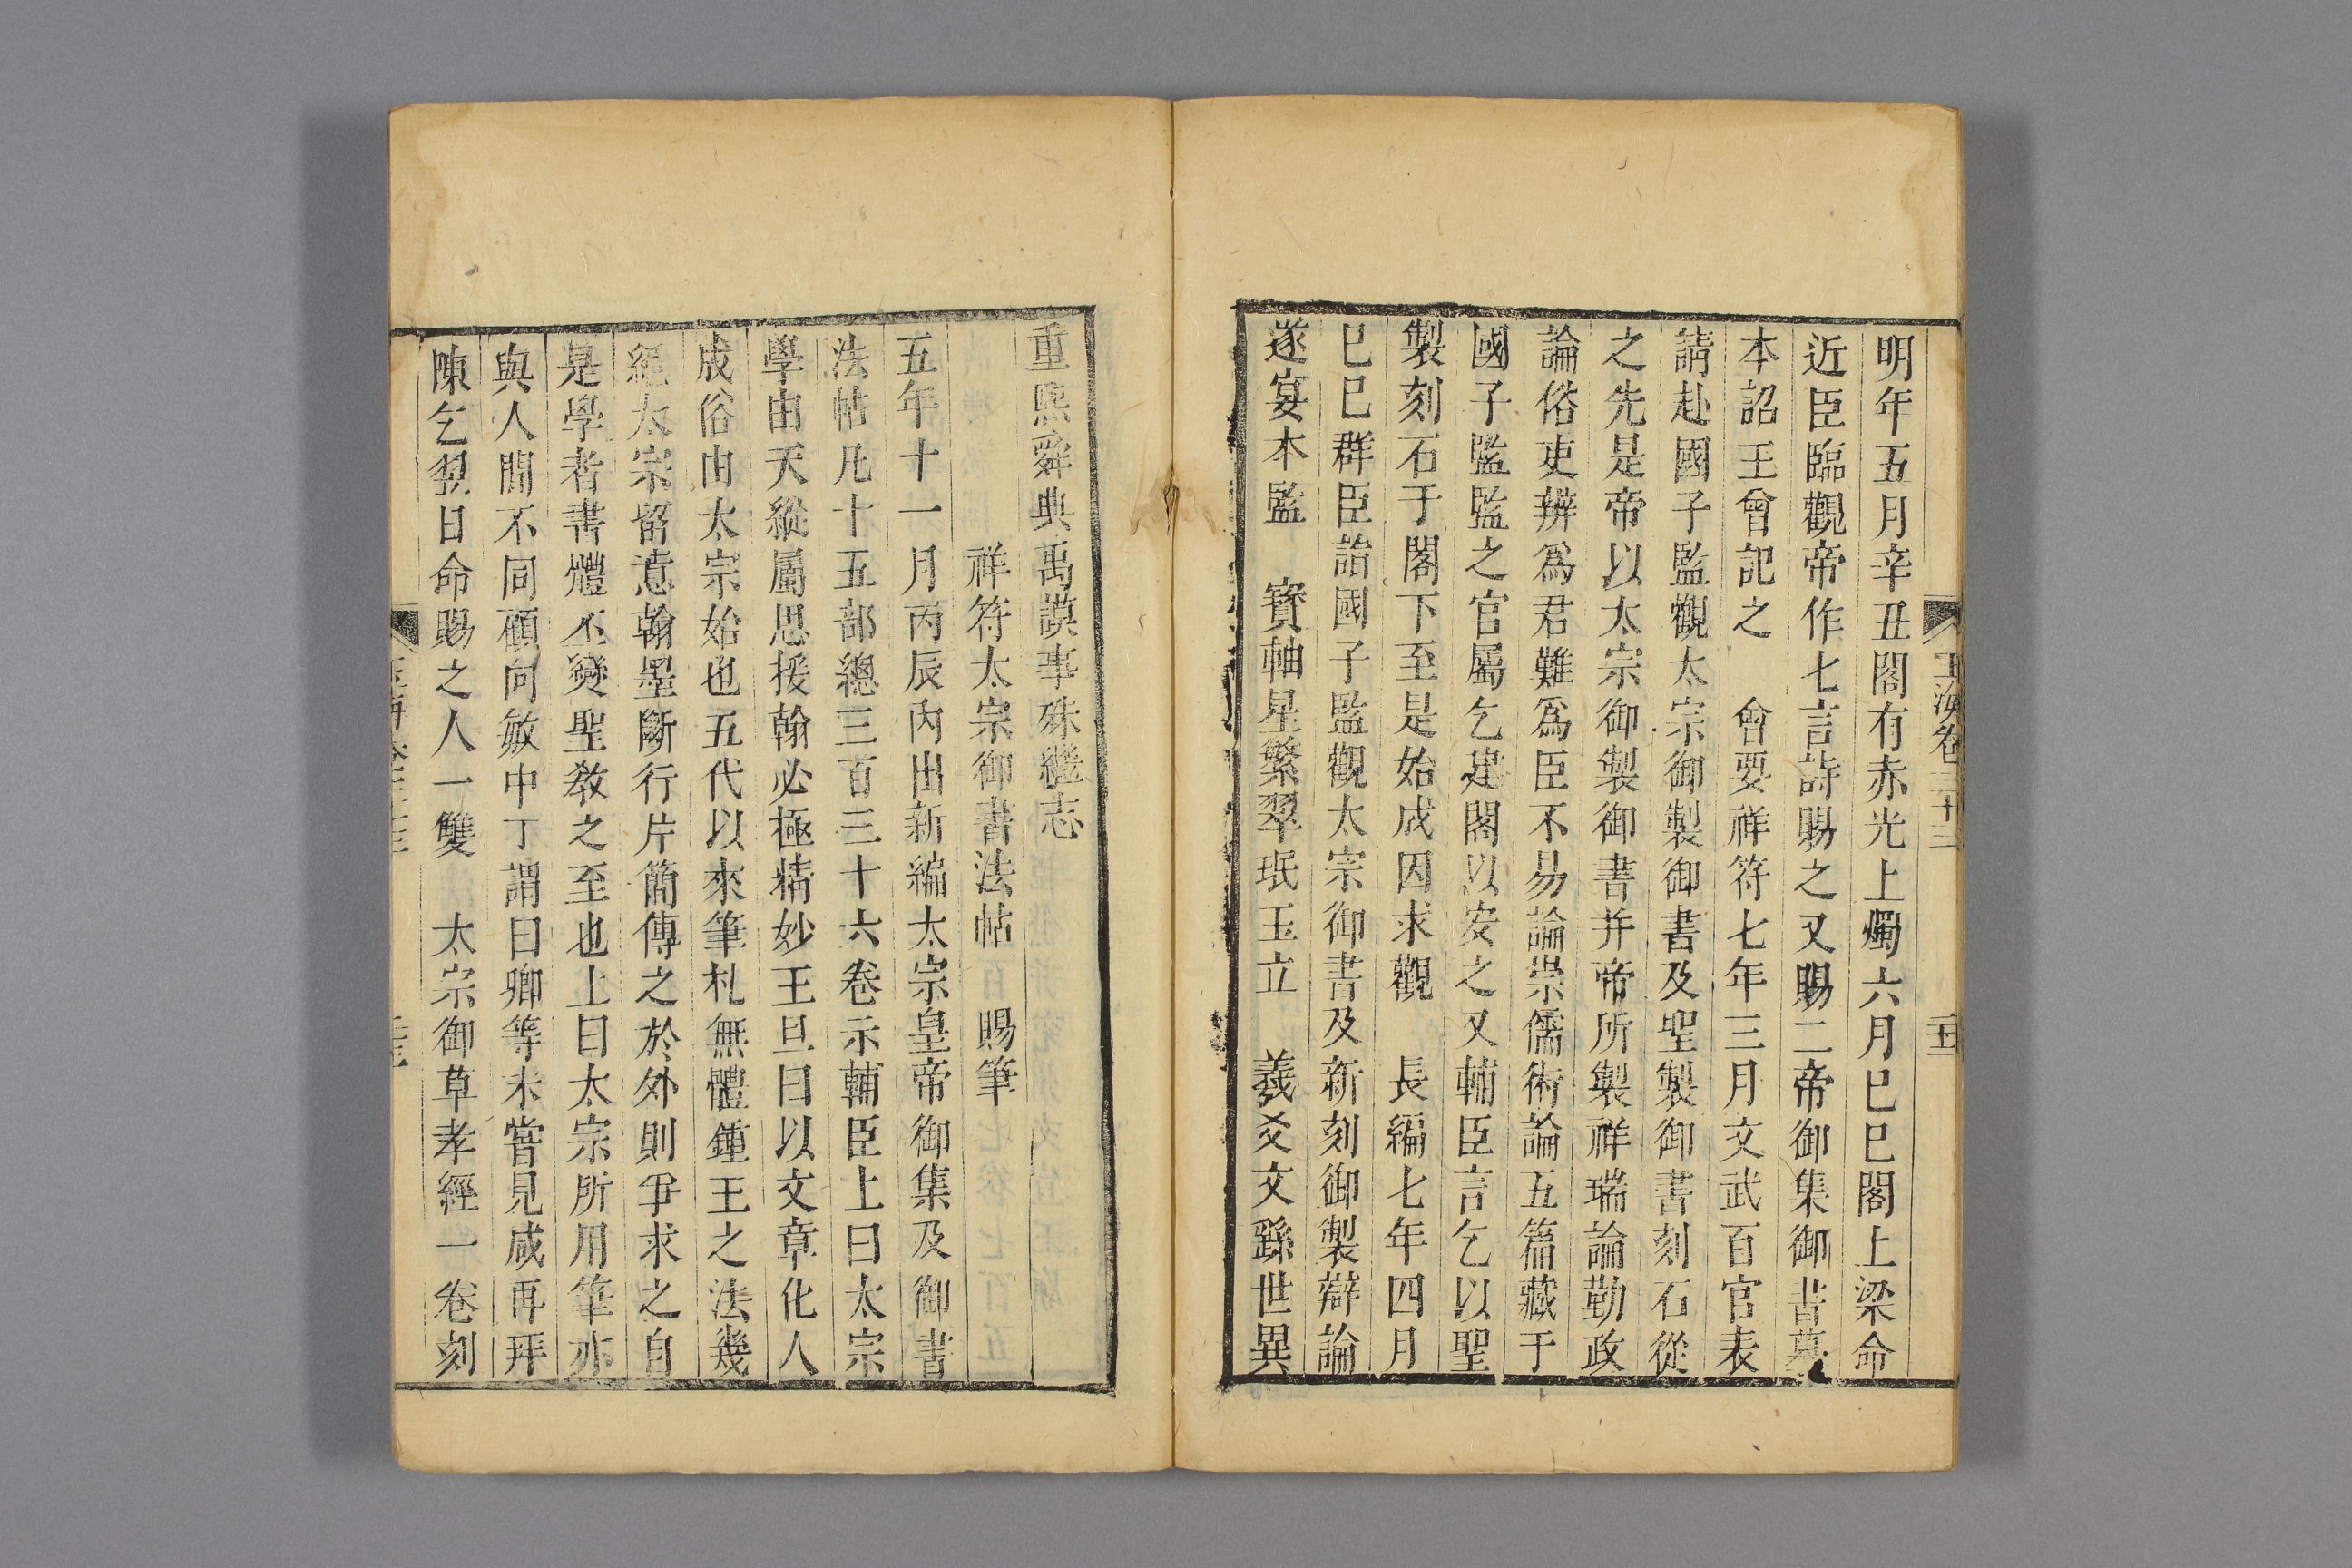 明年五月辛丑閣有赤光上燭六月己巳閣上梁命
近臣臨觀帝作七言詩賜之又賜二帝御集御書墓
本詔王曾記之　會要祥符七年三月文武百官表
請赴國子監觀太宗御製御書及聖製御書刻石從
之先是帝以太宗御製御書并帝所製祥瑞論勤政
論俗吏辨爲君難爲臣不易論崇儒術論五篇藏于
國子監監之官屬乞建閣以安之又輔臣言乞以聖
製刻石于閣下至是始成因求觀　長編七年四月
己巳群臣詣國子監觀太宗御書及新刻御製辯論
遂宴本監　寶軸星繁翠珉玉立　羲爻文繇世異
重熙舜典禹謨事殊繼志
祥符太宗御書法帖　賜筆
五年十一月丙辰內出新編太宗皇帝御集及御書
法帖凡十五部總三百三十六卷示輔臣上曰太宗
學由天縱屬思援翰必極精妙王旦曰以文章化人
成俗由太宗始也五代以來筆札無體鍾王之法幾
絕太宗留意翰墨斷行片簡傳之於外則爭求之自
是學者書體丕變聖教之至也上曰太宗所用筆亦
與人間不同顧向敏中丁謂曰卿等未嘗見咸再拜
陳乞翌日命賜之人一雙　太宗御草孝經一卷刻